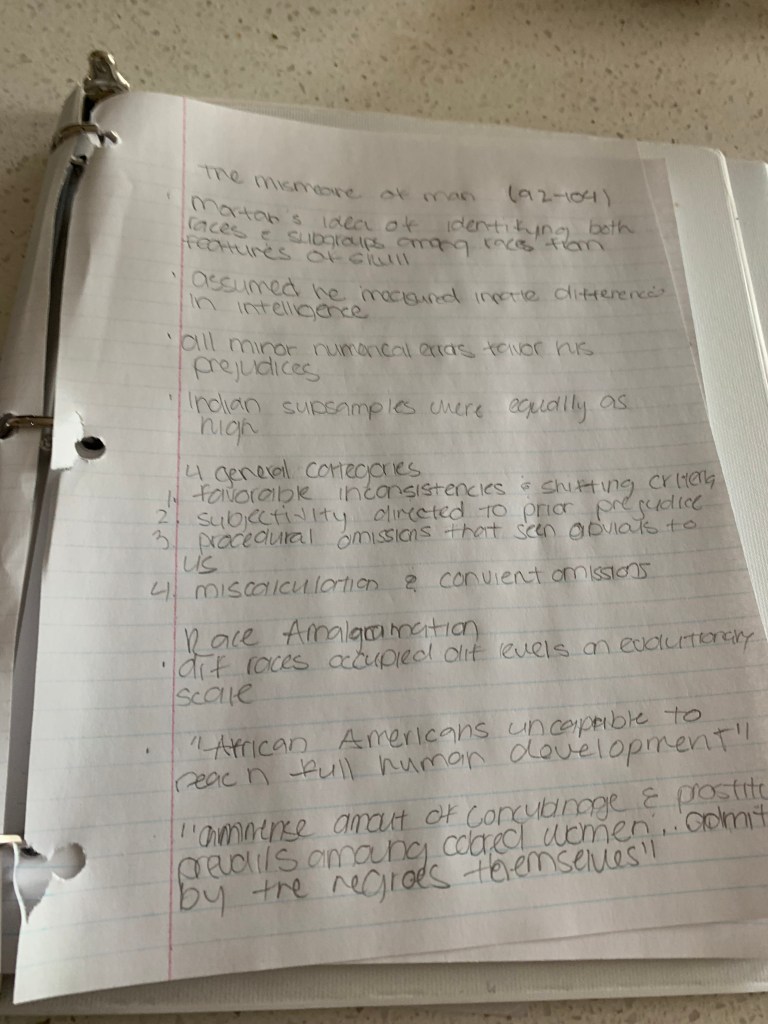 The mismeare of man (92-104)
· Morton's idea of identifying both
races & subgroups among races from
features of skull
· assumed he measured innate difference
in intelligence
· all minor numerical erros favor his
prejudices
· Indian subsamples were equally as
high
4 general categories
1. favorable inconsistencies & shifting criteria
2. subjectivity directed to prior prejudice
3. procedural omissions that seen obvials to
us
4. miscalculation & convient omissions
Race Amalgamation
· dif races occupied dif levels on evolutionary
scale
· "African Americans uncapable to
reach full human development"
"ammense amout of concubinage & prostitu
prevails among colored women.. admit
by the negroes themselves"